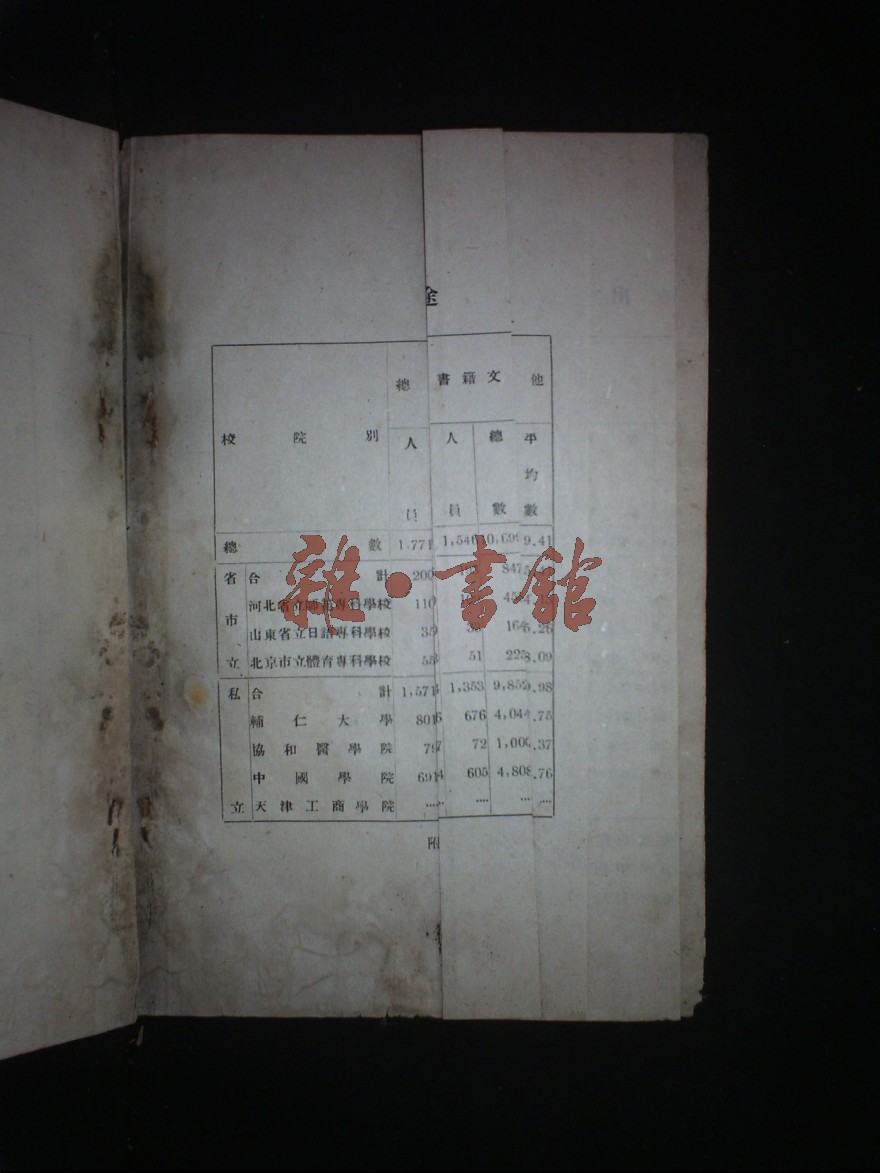 途
校院別 總 書籍文 他
人員 人員 總數 平均數
總數 1,771 1,546 10,699 9.41
省市立 合計 200 847
河北省立師範專科學校 110
山東省立日語專科學校 35 164 .26
北京市立體育專科學校 55 51 223 .09
私立 合計 1,571 1,353 9,852 .98
輔仁大學 801 676 4,044 .75
協和醫學院 79 72 1,000 .37
中國學院 691 605 4,808 .76
天津工商學院 .... .... .... ....
附
雜·書館